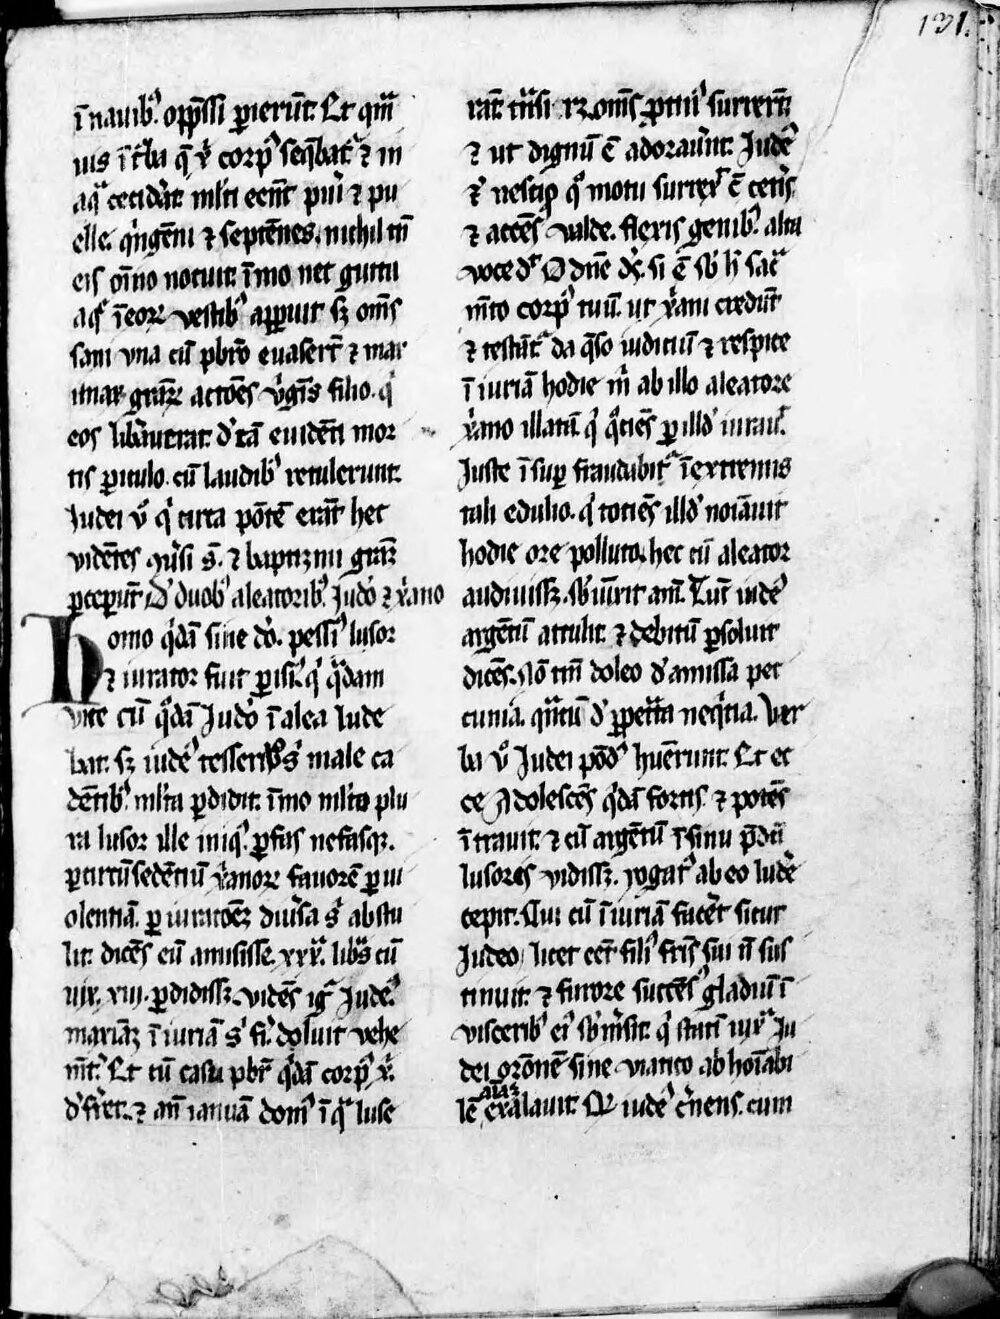 131.
ī nauib᷒ opp̄ssi ꝑierūt. Et qm̄
uis ī
corp᷒ seq̄bat᷑ ⁊ in
aq̄ ceciderāt ml̄ti eēnt pueri ⁊ pu
elle. q̇ngēni ⁊ septēnes. nichil tn̄
eis oīno nocuit. īmo nec gutta
aq̄ ī eoꝝ vestib᷒ apparuit sꝫ om̄s
sani vna cū pb̄ro euaserūt ⁊ mar
grāꝝ actōes v̇gīs filio. q̇
eos lib̄auerat. d̓ tā euidēti mor
tis ꝑiculo. cū laudib᷒ retulerunt.
Iudei v̊ q̇ circa pōtē erāt hec
vidētes ꝯu̇si s̄. ⁊ baptizmi grāꝫ
ꝑceperūt. D̓ duob᷒ aleatorib᷒. Iudō ⁊ xᷓano
Homo q̇dā sine dō. pessim᷒ lusor
⁊ iurator fuit ꝑisi᷒. q̇ q̄dam
vice cū q̇dā Iudō ī alea lude
bat. sꝫ iude᷒ tesserib᷒ s᷒ male ca
dētib᷒ ml̄ta ꝑdidit. īmo ml̄to plu
ra lusor ille iniq᷒. ꝓfus nefasqꝫ.
ꝑ circū sedētiū xᷓanoꝝ fauorē ꝑ ui
olentiā. ꝑ iuratōeꝫ diu̇sa s᷒ abstu
lit. dicēs eū amisisse. xxx. libᷓs cū
uix. viij. ꝑdidissꝫ. vidēs igᷓ Iude᷒
mariaꝫ ī iuriā s᷒ fi᷒. doluit vehe
mt̄. Et cū casu pbr̄ q̇dā corp᷒ x᷒.
d̓fr̄et. ⁊ an̄ ianuā dom᷒ ī qᷓ luse
rāt trāsi ꝫ om̄s ꝓtin᷒ surrexerūt
⁊ ut dignū ē adorauūt. Iude᷒
⁊ nescio q᷒ motu surrexit cū cetis
⁊ accēs valde. flexis genib᷒. alta
voce d᷒. O dn̄e ds̄. si ē sb̄ h᷒ sac᷑
m̄to corp᷒ tuū. ut xᷓani credunt
⁊ testānt᷑ da q̄so iudiciū ⁊ respice
ī iuriā hodie m̄ ab illo aleatore
xᷓano illatā q̇ q᷒ciēs ꝑ illd̓ iurau᷒.
Iuste īsuꝑ fraudabit᷑ ī extremis
tali edulio. q̇ tociēs illd̓ noīauit
hodie ore polluto. hec cū aleator
audiuissꝫ. sb̄uūrit am̄. Tūc iude᷒
argētū attulit. ⁊ debitū ꝑsoluit
dicēs. Nō tm̄ doleo d̓ amissa pec
cunia. qᷓntū d̓ ꝑpetᷓta neq̇tia. Ver
ba v᷒ Iudei pōd᷒ huerunt. Et ec
ce Adolescēs q̇dā fortis. ⁊ potēs
ītrauit. ⁊ cū argētū ī sinu p̄dcī
lusores vidissꝫ. rogat᷑ ab eo ludē
cepit. Cui cū ī iuriā facēt sicut
Iudeo. licet eēt fili᷒ fr̄is sui n̄ sus
tinuit. ⁊ furore succēs᷒ gladiū ī
visceribꝰ ei᷒ sb̄m̄sit. q̇ statī iuxᷓ Iu
dei orōnē sine viatico abhoīabi
lē aīaꝫ exalauit. Qd̓ iude᷒ c̓nens. cum